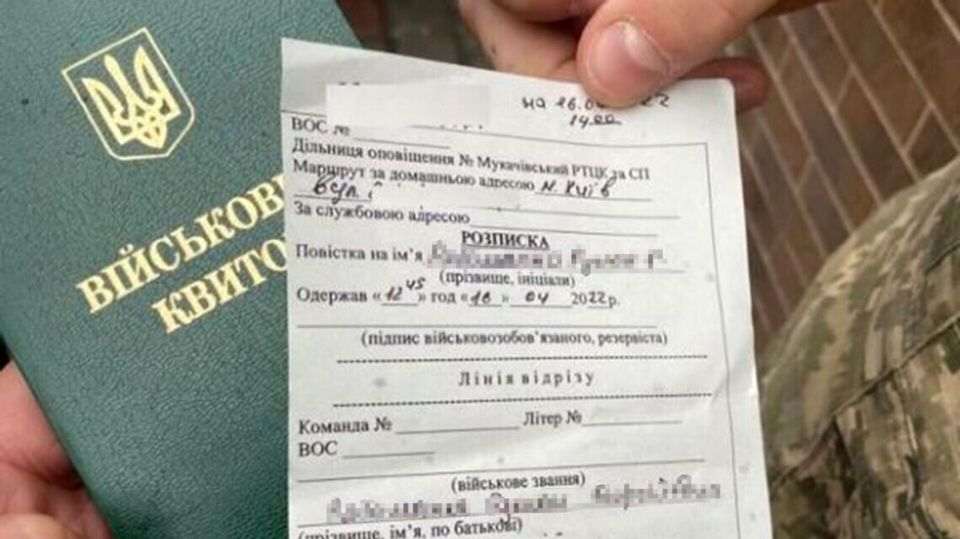 ВІЙСЬКОВ
КВИТО
на 16.0 22
14 00
ВОС №
Дільниця оповіщення № Мукачівський РТЦК та СП
Маршрут за домашньою адресою м. Київ
За службовою адресою
РОЗПИСКА
Повістка на ім’я
(прізвище, ініціали)
Одержав «12 45» год «16» 04 2022 р.
(підпис військовозобов’язаного, резервіста)
Лінія відрізу
Команда № Літер №
ВОС
(військове звання)
(прізвище, ім’я, по батькові)